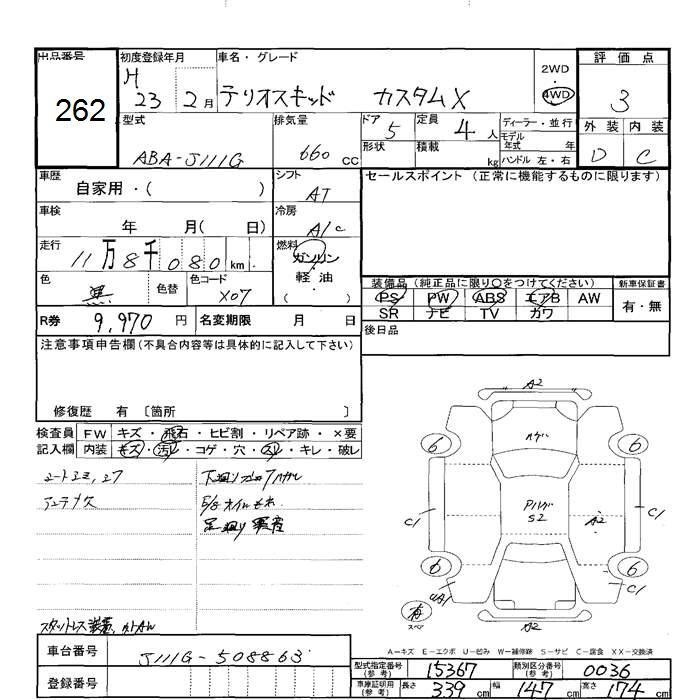 出品番号
262
初度登録年月
H
23 2月
車名・グレード
テリオスキッド カスタムX
2WD
4WD
評価点
3
外装 内装
D C
型式
ABA-J111G
排気量
660 cc
ドア 5
形状
定員 4人
積載 kg
ディーラー・並行
モデル年式 年
ハンドル 左・右
車歴
自家用・( )
シフト
AT
セールスポイント (正常に機能するものに限ります)
車検
年 月( 日)
冷房
A/C
走行
11万8千080km
燃料
ガソリン
軽油
( )
色
黒
色替
色コード
X07
装備品 (純正品に限り○をつけてください)
PS PW ABS エアB AW
SR ナビ TV カワ
新車保証書
有・無
R券 9,970円
名変期限 月 日
後日品
注意事項申告欄(不具合内容等は具体的に記入して下さい)
修復歴 有 〔箇所 〕
検査員
記入欄
FW キズ・飛石・ヒビ割・リペア跡・×要
内装 キズ・汚レ・コゲ・穴・スレ・キレ・破レ
A2
ハゲ
6 6
C1 C1
Pハゲ
S2
A2
6 6
UA1 C1
有
スペア
A2
A－キズ E－エクボ U－凹み W－補修跡 S－サビ C－腐食 XX－交換済
車台番号
J111G-508863
登録番号
型式指定番号
(参考)
15367
類別区分番号
(参考)
0036
車庫証明用
(参考)
長さ 339cm 幅 147cm 高さ 174cm